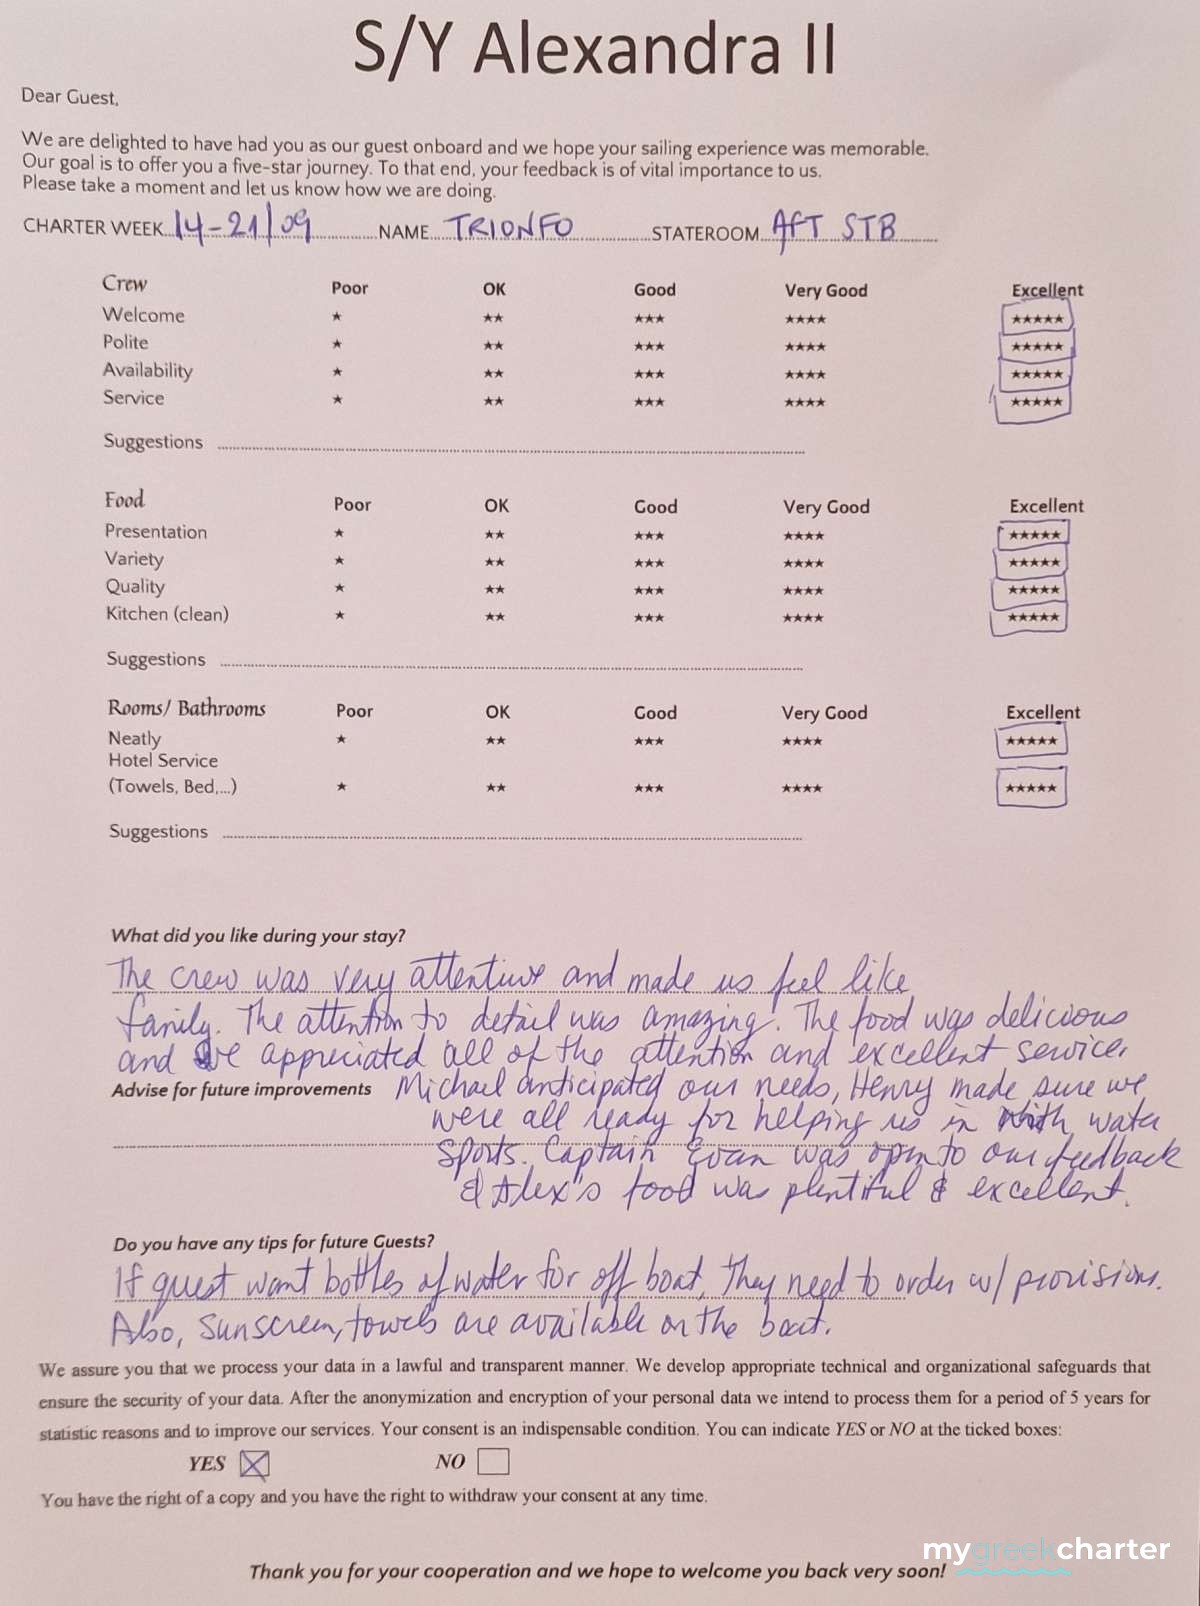 S/Y Alexandra II
Dear Guest,
We are delighted to have had you as our guest onboard and we hope your sailing experience was memorable.
Our goal is to offer you a five-star journey. To that end, your feedback is of vital importance to us.
Please take a moment and let us know how we are doing.
CHARTER WEEK 14-21/09 NAME TRIONFO STATEROOM AFT STB
Crew Poor OK Good Very Good Excellent
Welcome ★ ★★ ★★★ ★★★★ ★★★★★
Polite ★ ★★ ★★★ ★★★★ ★★★★★
Availability ★ ★★ ★★★ ★★★★ ★★★★★
Service ★ ★★ ★★★ ★★★★ ★★★★★
Suggestions
Food Poor OK Good Very Good Excellent
Presentation ★ ★★ ★★★ ★★★★ ★★★★★
Variety ★ ★★ ★★★ ★★★★ ★★★★★
Quality ★ ★★ ★★★ ★★★★ ★★★★★
Kitchen (clean) ★ ★★ ★★★ ★★★★ ★★★★★
Suggestions
Rooms/ Bathrooms Poor OK Good Very Good Excellent
Neatly ★ ★★ ★★★ ★★★★ ★★★★★
Hotel Service
(Towels, Bed,...) ★ ★★ ★★★ ★★★★ ★★★★★
Suggestions
What did you like during your stay?
The crew was very attentive and made us feel like
family. The attention to detail was amazing. The food was delicious
and we appreciated all of the attention and excellent service.
Advise for future improvements Michael anticipated our needs, Henry made sure we
were all ready for helping us in with water
sports. Captain Evan was open to our feedback
& Alex's food was plentiful & excellent.
Do you have any tips for future Guests?
If guest want bottles of water for off boat, they need to order w/ provisions.
Also, sunscreen, towels are available on the boat.
We assure you that we process your data in a lawful and transparent manner. We develop appropriate technical and organizational safeguards that
ensure the security of your data. After the anonymization and encryption of your personal data we intend to process them for a period of 5 years for
statistic reasons and to improve our services. Your consent is an indispensable condition. You can indicate YES or NO at the ticked boxes:
YES ☒ NO ☐
You have the right of a copy and you have the right to withdraw your consent at any time.
mygreekcharter
Thank you for your cooperation and we hope to welcome you back very soon!